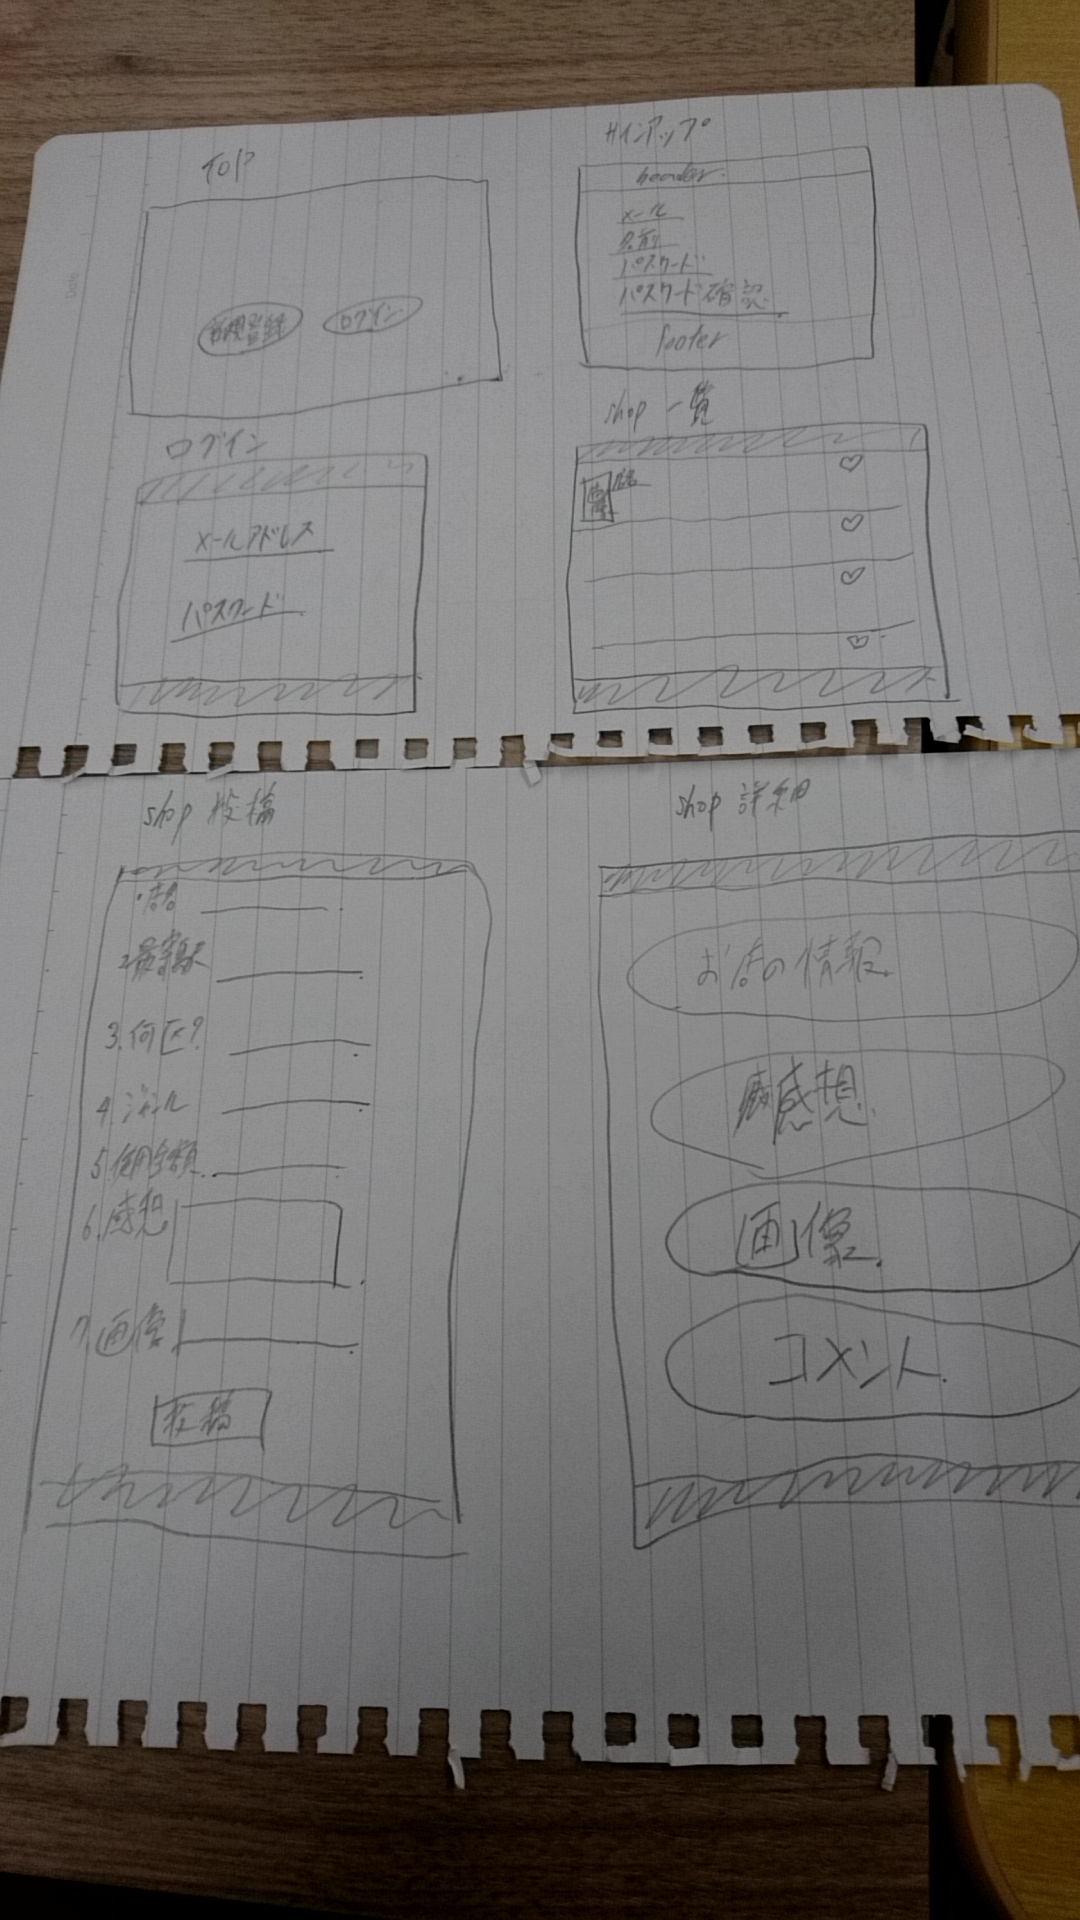 TOP
新規登録
ログイン
サインアップ
header
メール
名前
パスワード
パスワード確認
footer
ログイン
メールアドレス
パスワード
shop 一覧
画像
店名
shop 投稿
店名
2.最寄駅
3.何区?
4.ジャンル
5.使用金額
6.感想
7.画像
投稿
shop 詳細
お店の情報
感想
画像
コメント